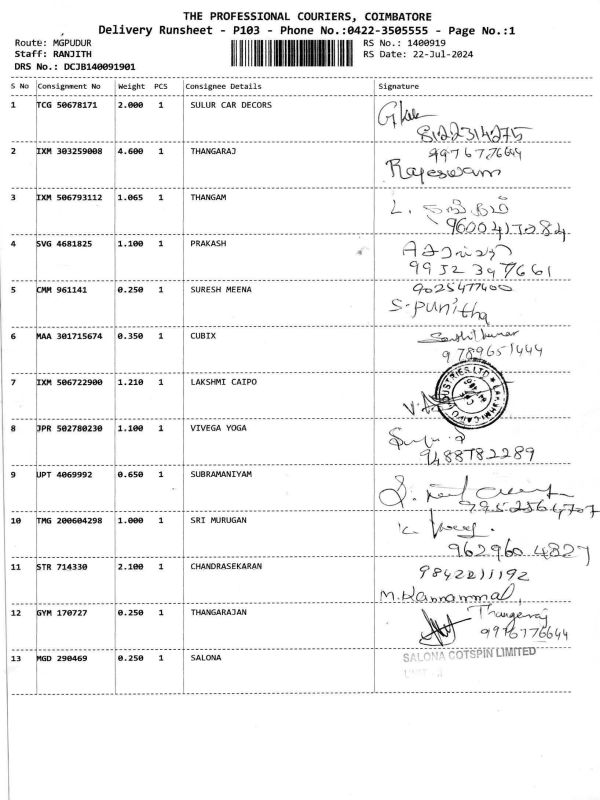 THE PROFESSIONAL COURIERS, COIMBATORE
Delivery Runsheet - P103 - Phone No.:0422-3505555 - Page No.:1
Route: MGPUDUR
RS No.: 1400919
Staff: RANJITH
RS Date: 22-Jul-2024
DRS No.: DCJB140091901
S No Consignment No Weight PCS Consignee Details Signature
1 TCG 50678171 2.000 1 SULUR CAR DECORS
8122314275
2 IXM 303259008 4.600 1 THANGARAJ 9976776644
Rajeswam
3 IXM 506793112 1.065 1 THANGAM
9600417084
4 SVG 4681825 1.100 1 PRAKASH
9952397661
5 CMM 961141 0.250 1 SURESH MEENA 9025477400
S-punitha
6 MAA 301715674 0.350 1 CUBIX Senthilkumar
9789651444
7 IXM 506722900 1.210 1 LAKSHMI CAIPO
8 JPR 502780230 1.100 1 VIVEGA YOGA
9488782289
9 UPT 4069992 0.650 1 SUBRAMANIYAM
9952564707
10 TMG 200604298 1.000 1 SRI MURUGAN
9629604827
11 STR 714330 2.100 1 CHANDRASEKARAN 9842211192
M. Kannammal
12 GYM 170727 0.250 1 THANGARAJAN Thangaraj
9976776644
13 MGD 290469 0.250 1 SALONA SALONA COTSPIN LIMITED